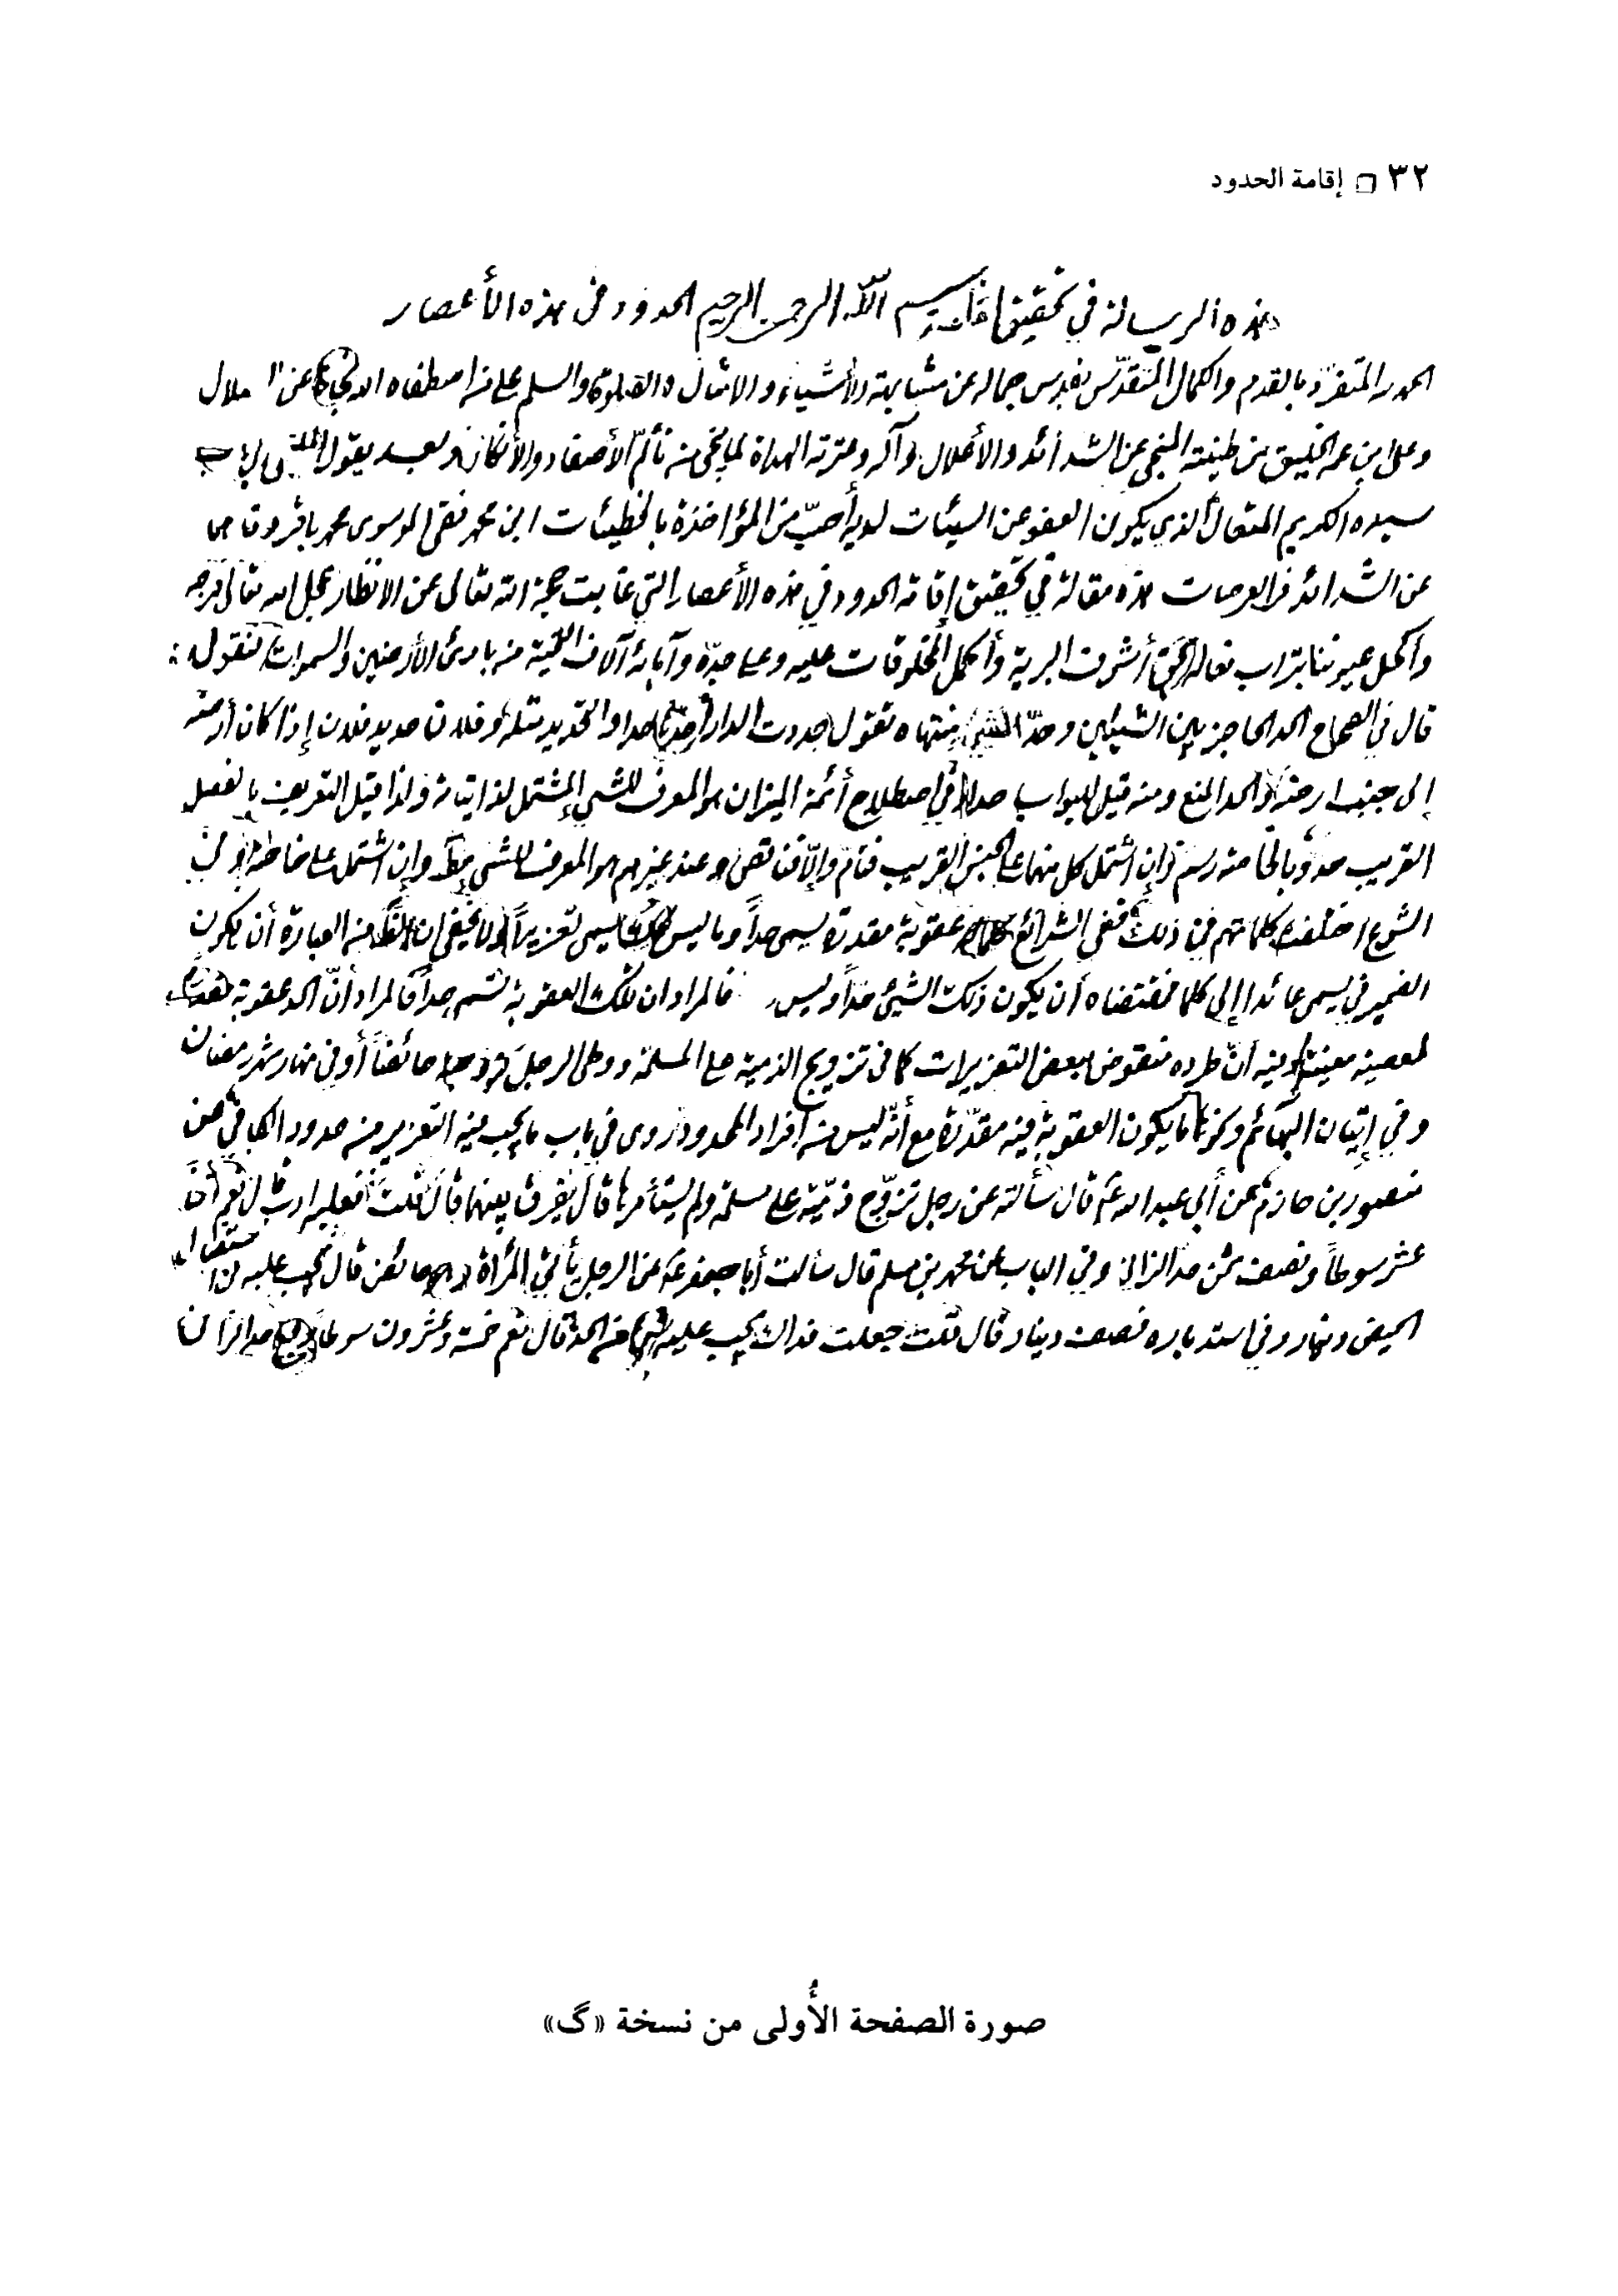 ٣٢ □ إقامة الحدود
هذه الرسالة في تحقيق إقامة بسم الله الرحمن الرحيم الحدود في هذه الأعصار
الحمد لله المتفرّد بالقدم والكمال المتقدّس بقدس جماله عن مشابهة الأشياء والامثال والصلوة والسلم على من اصطفاه لله عن
وعلى ابن عمه الخليق من طينته المنجي عن الشدائد والأضلال وآله وعترته الهداة من تألّم الأصفاد والأنكال وبعد يقول إلى باب
سيده الكريم المتعال الذي يكون العفو عن السيئات لديه أحبّ من المؤاخذة بالخطيئات ابن محمد نقي الموسوى محمد باقر وقاهما
عن الشدائد في العرصات هذه مقالة في تحقيق إقامة الحدود في هذه الأعصار التي غابت حجة الله تعالى عن الانظار عجل الله تعالى فرجه
وأكحل عيوننا بتراب نعاله بحق أشرف البرية وأكمل المخلوقات عليه وعلى جدّه وآبائه آلاف التحية من بارئ الأرضين والسموات فنقول :
قال في الصحاح الحد الحاجز بين الشيئين وحدّ الشيئ منتهاه تقول حددت الدار أحدّها حدا والتحديد مثله وفلان حديد فلان إذا كان أرضه
إلى جنب ارضه والحد المنع ومنه قيل للبواب حداد وفي اصطلاح أئمة الميزان هو المعرف للشيئ المشتمل لذاتياته ولذا قيل التعريف بالفصل
القريب حد وبالخاصة رسم فإن اشتمل كل منهما على الجنس القريب فتام وإلّا فناقص وعند غيرهم هو المعرف للشيئ مط وإن اشتمل على خاصّة وفي
الشرع اختلفت كلماتهم في ذلك ففي الشرائع كلما له عقوبة مقدرة يسمى حداً وما ليس كذلك يسمى تعزيراً ولا يخفى ان الظ من العبارة أن يكون
الضمير في يسمى عائدا إلى كلما فمقتضاه أن يكون ذلك الشيئ حداً وليس فالمراد ان تلك العقوبة تسمى حداً فالمراد أنّ الحد عقوبة مقدرة
لمعصية معينة وفيه أنّ طرده منقوض ببعض التعزيرات كما في تزويج الذمية على المسلمة ووطى الرجل زوجته حائضاً أو في نهار شهر رمضان
وفي إتيان البهائم ونحوها مما يكون العقوبة فيه مقدّرة مع أنّه ليس من أفراد المحدود روى في باب ما يجب فيه التعزير من حدود الكافي عن
منصور بن حازم عن أبي عبد الله ع قال سألته عن رجل تزوّج ذمّية على مسلمة ولم يستأمرها قال يفرق بينهما قال قلت فعليه ادب قال نعم اثنا
عشر سوطاً ونصف ثمن حد الزاني وفي الباب عن محمد بن مسلم قال سألت أبا جعفر ع عن الرجل يأتي المرأة وهي حائض قال يجب عليه في استقبال
الحيض دينار وفي استدباره نصف دينار قال قلت جعلت فداك يجب عليه شيئ من الحد قال نعم خمسة وعشرون سوطا ربع حد الزاني
صورة الصفحة الأُولى من نسخة «گ»